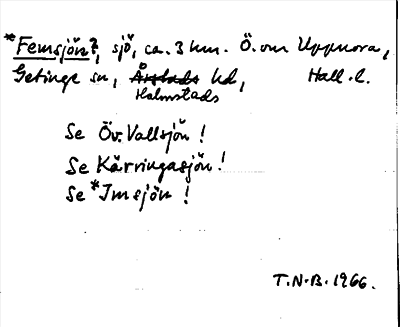 *Femsjön?, sjö, ca. 3 km. Ö. om Uppnora,
Getinge sn, Årstads hd, Hall. l.
Halmstads
Se Öv. Vallsjön!
Se Kärringasjön!
Se *Imsjön!
T.N.B. 1966.